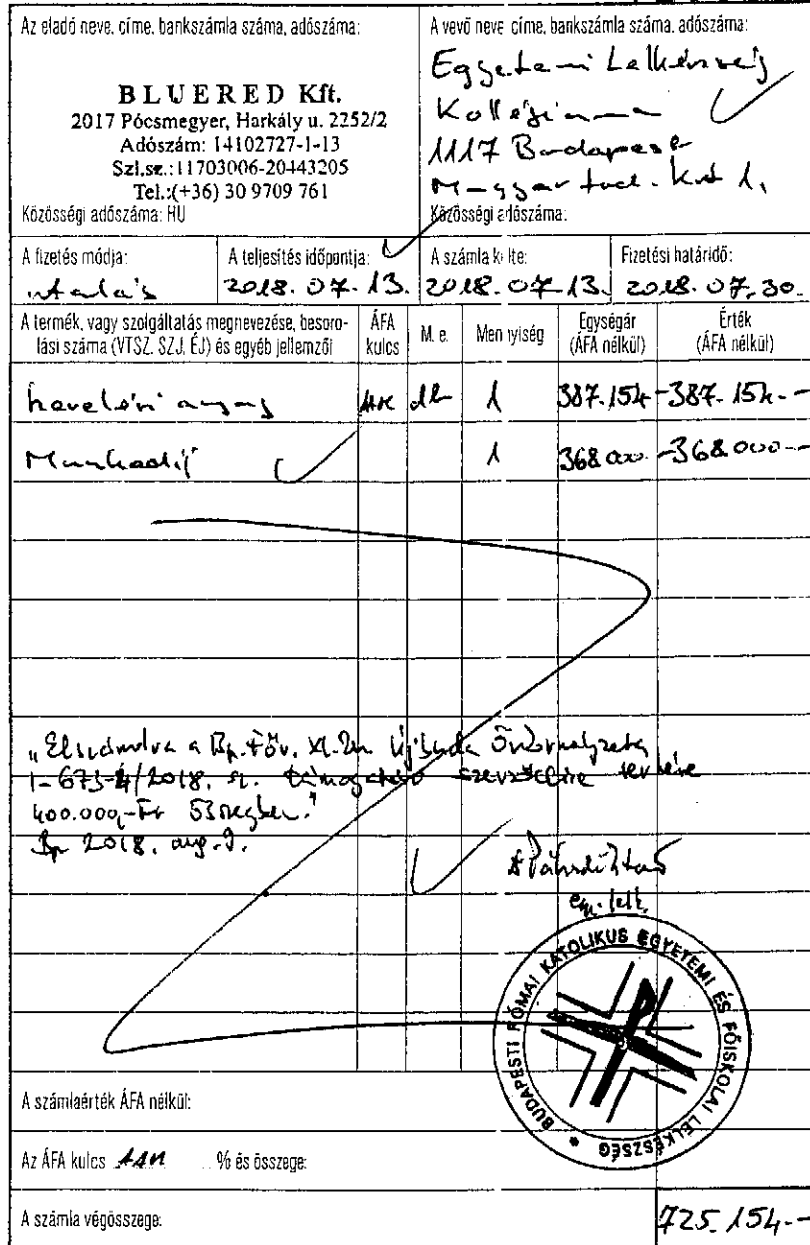 Az eladó neve, címe, bankszámla száma, adószáma:
BLUERED Kft.
2017 Pócsmegyer, Harkály u. 2252/2
Adószám: 14102727-1-13
Szl.sz.:11703006-20443205
Tel.:(+36) 30 9709 761
Közösségi adószáma: HU
A vevő neve címe, bankszámla száma, adószáma:
Egyetemi Lelkészség
Kollégiuma
1117 Budapest
Magyar tud. krt 1.
Közösségi adószáma:
A fizetés módja:
utalás
A teljesítés időpontja:
2018.07.13.
A számla kelte:
2018.07.13.
Fizetési határidő:
2018.07.30.
A termék, vagy szolgáltatás megnevezése, besoro-
lási száma (VTSZ, SZJ, ÉJ) és egyéb jellemzői
ÁFA
kulcs
M. e.
Mennyiség
Egységár
(ÁFA nélkül)
Érték
(ÁFA nélkül)
anyag 1 387.154- 387.154.-
Munkadíj 1 368.000.- 368.000.-
„Elszámolva a Bp. Főv. XI. Ker. Újbuda Önkormányzata
1-673-4/2018. sz. támogatási szerződése terhére
400.000,-Ft összegben."
Bp 2018. aug. 9.
egy. lelk.
BUDAPESTI RÓMAI KATOLIKUS EGYETEMI ÉS FŐISKOLAI LELKÉSZSÉG *
A számlaérték ÁFA nélkül:
Az ÁFA kulcs AAM % és összege:
A számla végösszege:
725.154.-